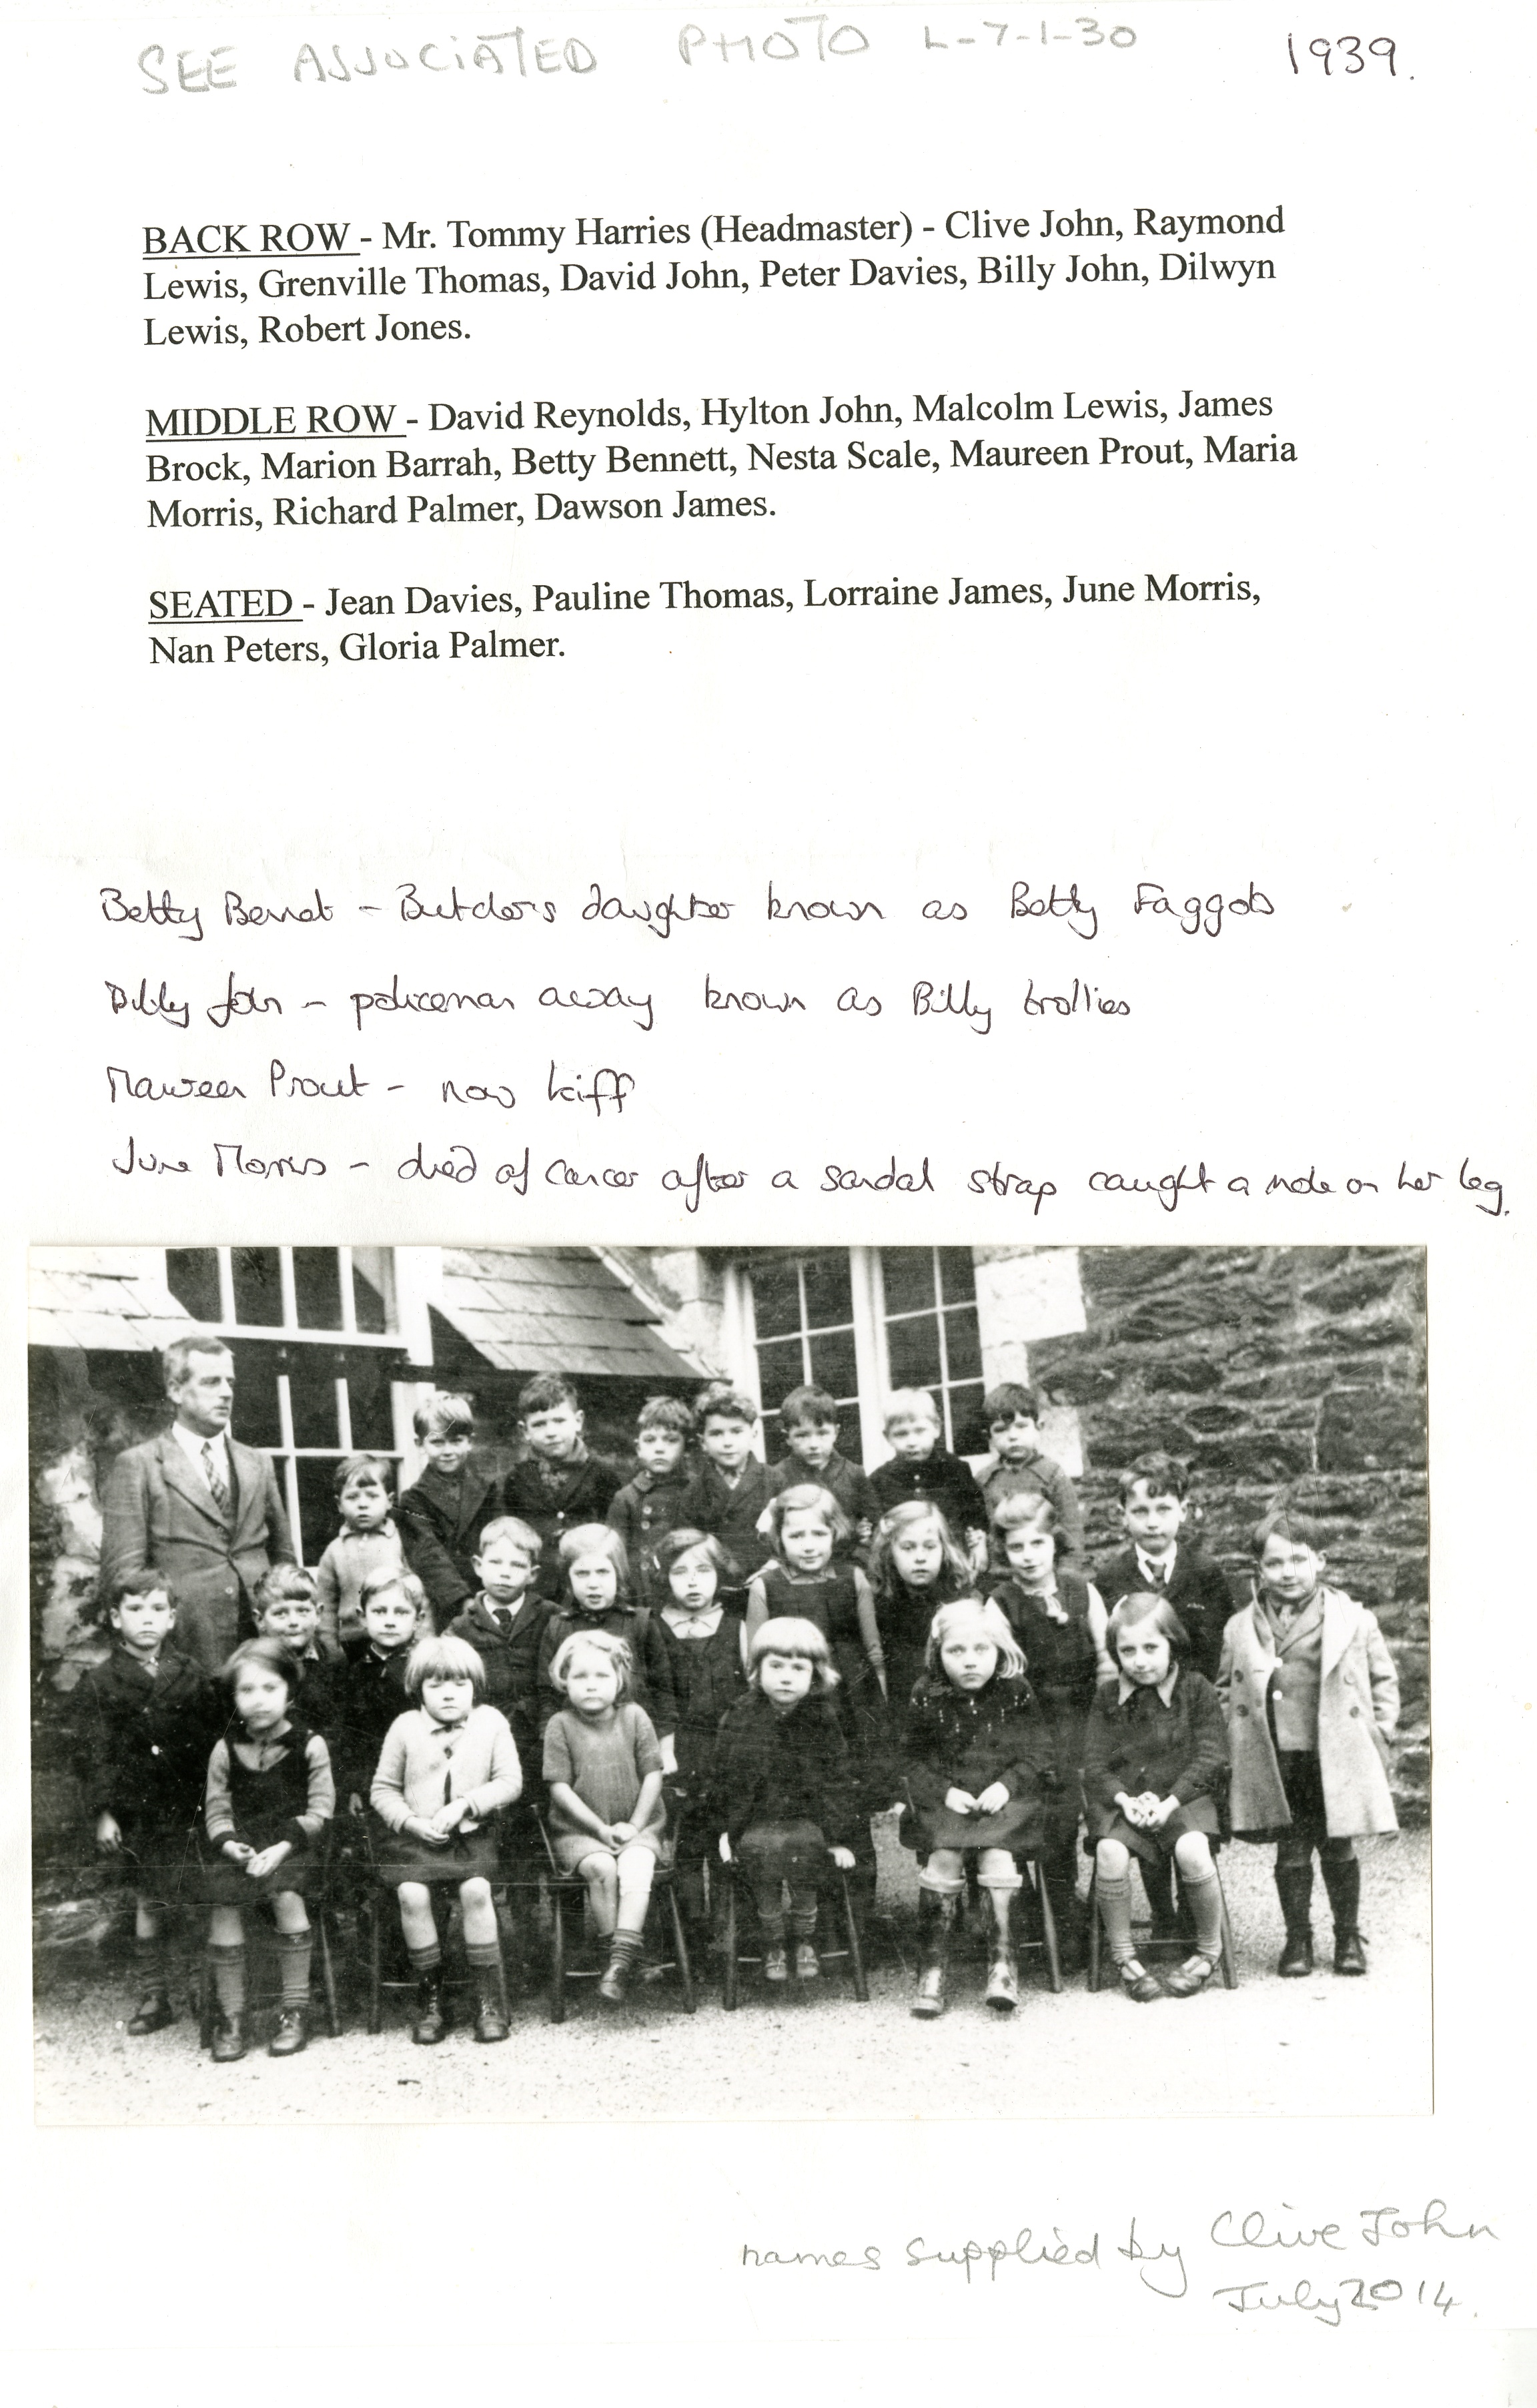 SEE ASSOCIATED PHOTO L-7-1-30 1939.
BACK ROW - Mr. Tommy Harries (Headmaster) - Clive John, Raymond
Lewis, Grenville Thomas, David John, Peter Davies, Billy John, Dilwyn
Lewis, Robert Jones.
MIDDLE ROW - David Reynolds, Hylton John, Malcolm Lewis, James
Brock, Marion Barrah, Betty Bennett, Nesta Scale, Maureen Prout, Maria
Morris, Richard Palmer, Dawson James.
SEATED - Jean Davies, Pauline Thomas, Lorraine James, June Morris,
Nan Peters, Gloria Palmer.
Betty Bennet - Butchers daughter known as Betty Faggots
Billy John - policeman away known as Billy trollies
Maureen Prout - now Kiff
June Morris - died of cancer after a sandal strap caught a mole on her leg.
names supplied by Clive John
July 2014.